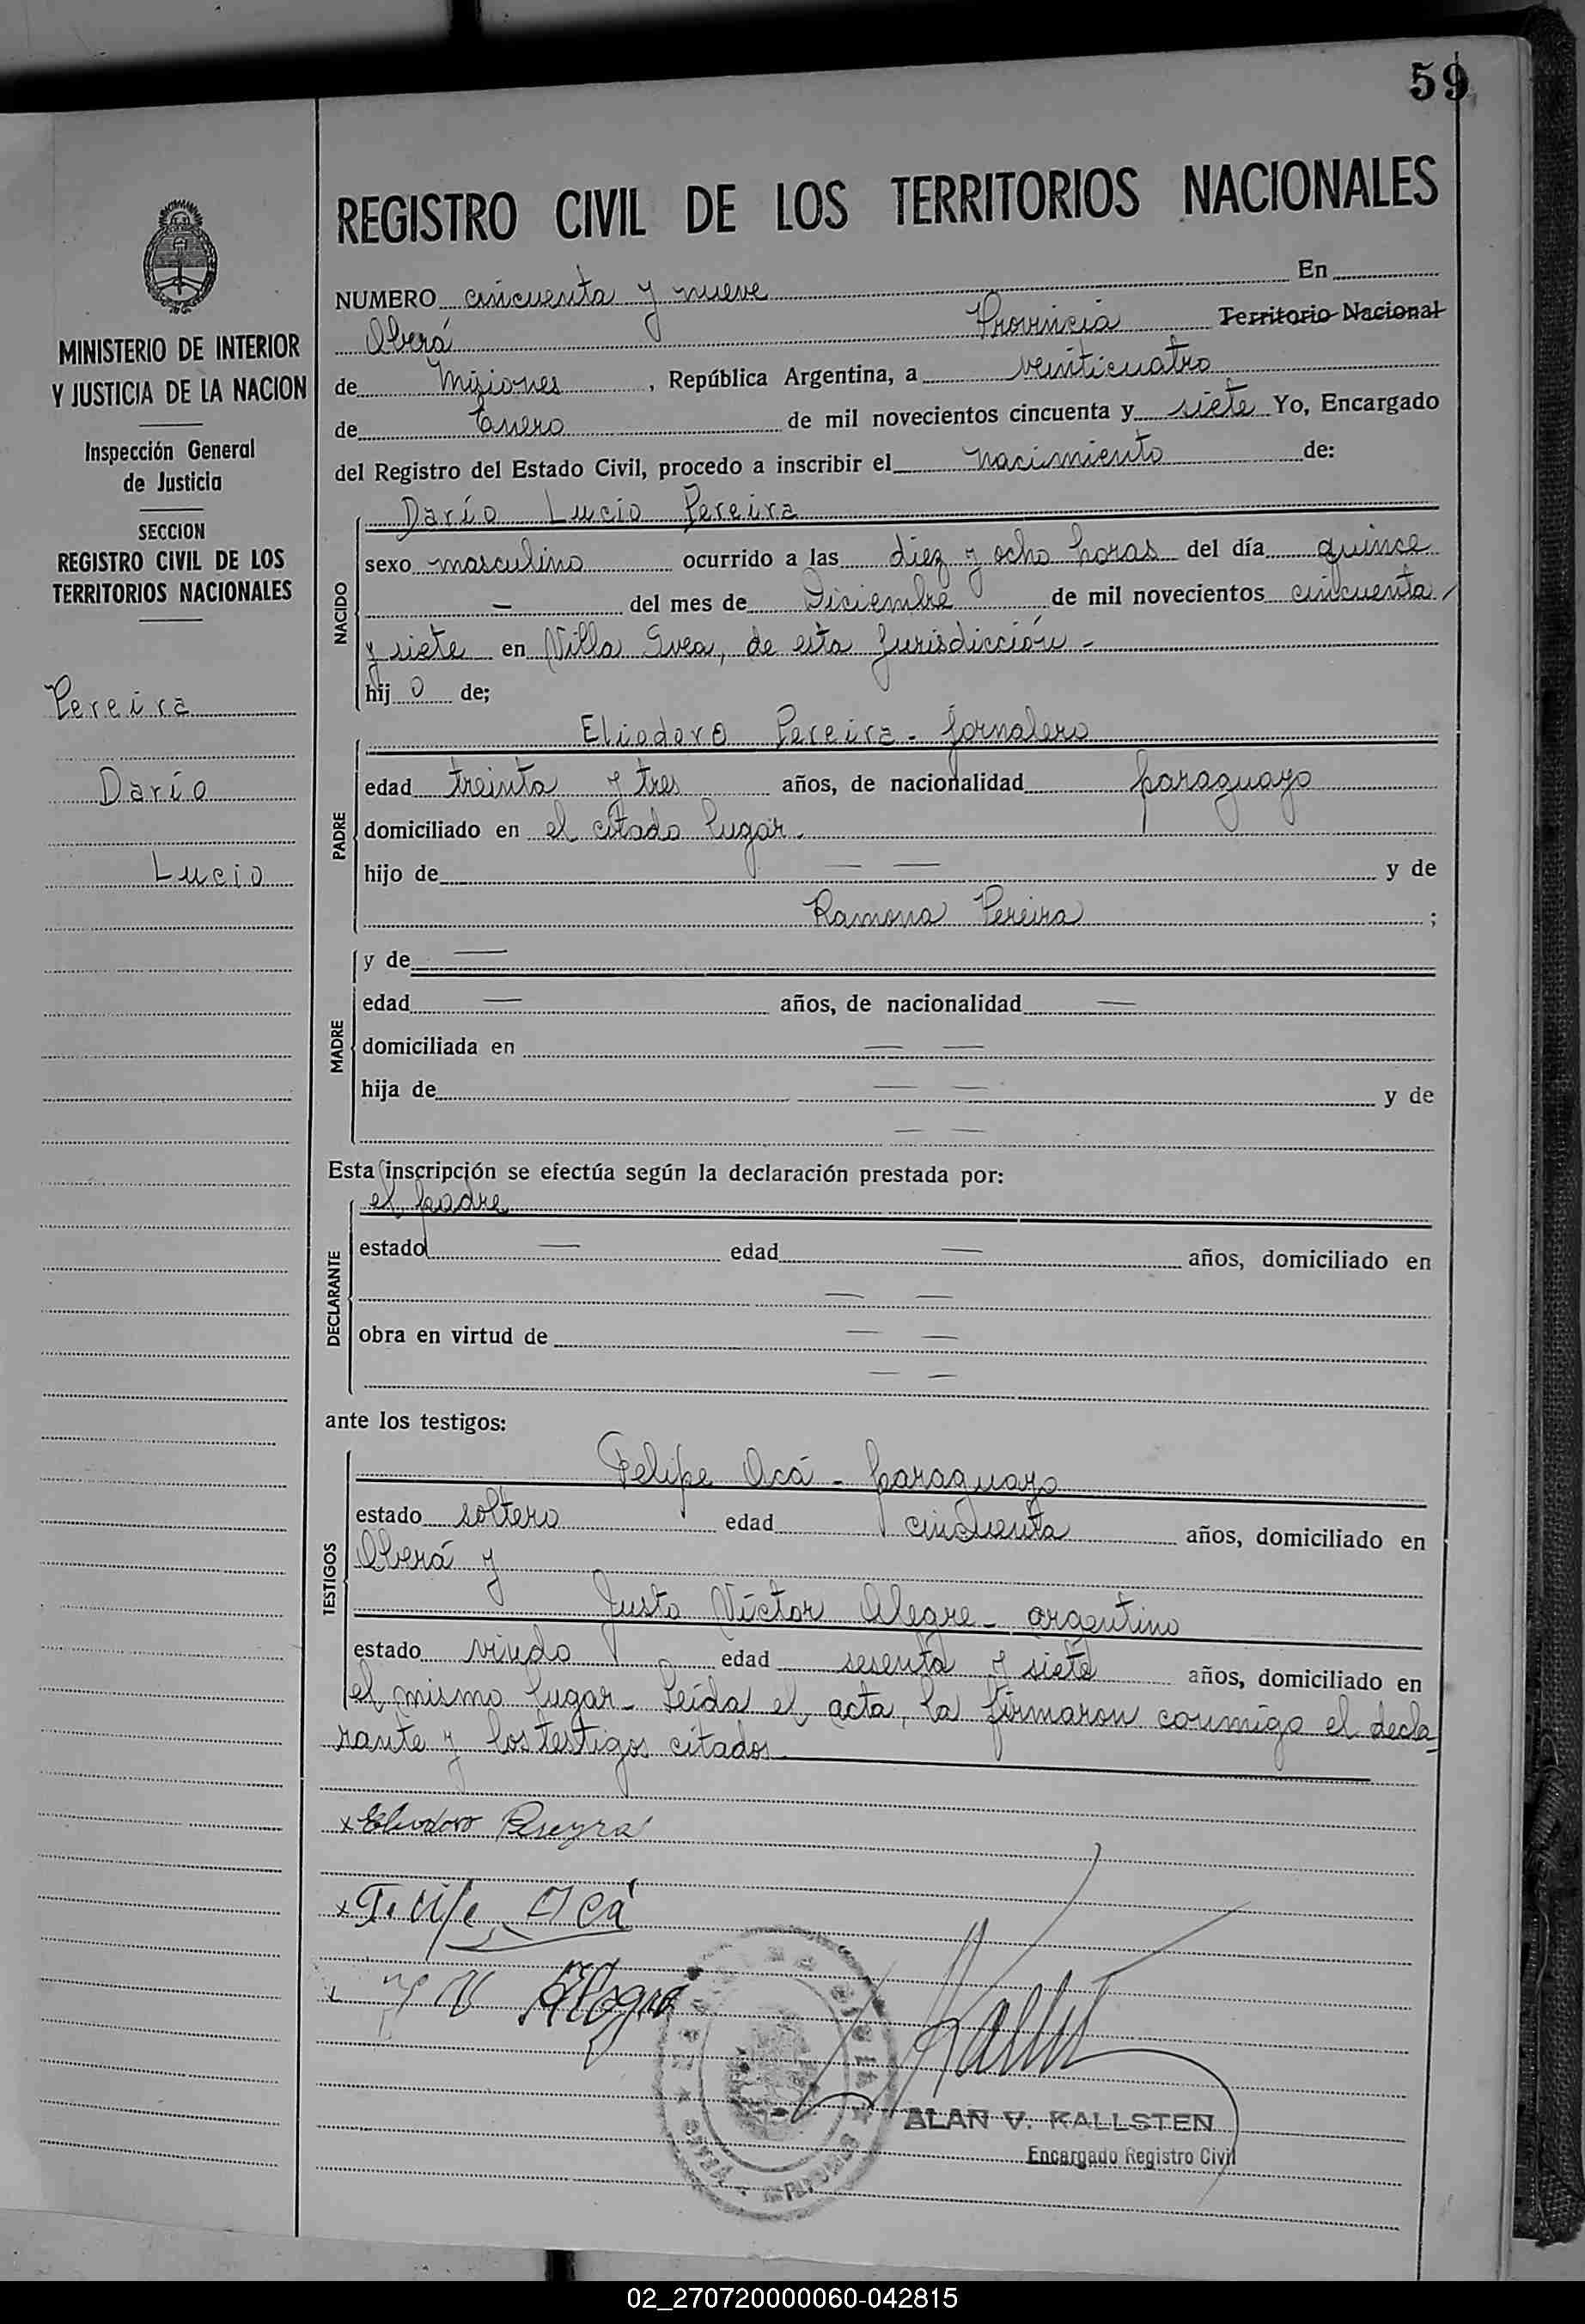 59
REGISTRO CIVIL DE LOS TERRITORIOS NACIONALES
NUMERO cincuenta y nueve En
Oberá Provincia Territorio Nacional
de Misiones, República Argentina, a veinticuatro
de Enero de mil novecientos cincuenta y siete Yo, Encargado
del Registro del Estado Civil, procedo a inscribir el nacimiento de:
NACIDO
Darío Lucio Pereira
sexo masculino ocurrido a las diez y ocho horas del día quince
— del mes de Diciembre de mil novecientos cincuenta
y siete en Villa Svea, de esta Jurisdicción -
hij o de;
PADRE
Eliodoro Pereira - jornalero
edad treinta y tres años, de nacionalidad paraguayo
domiciliado en el citado lugar.
hijo de — — y de
Ramona Pereira ;
MADRE
y de —
edad — años, de nacionalidad —
domiciliada en — —
hija de — — y de
— —
Esta inscripción se efectúa según la declaración prestada por:
DECLARANTE
el padre
estado — edad — años, domiciliado en
— —
obra en virtud de — —
— —
ante los testigos:
TESTIGOS
Felipe Ocá - paraguayo
estado soltero edad cincuenta años, domiciliado en
Oberá y
Justo Víctor Alegre - argentino
estado viudo edad sesenta y siete años, domiciliado en
el mismo lugar - Leída el acta, la firmaron conmigo el decla-
rante y los testigos citados
x Eliodoro Pereyra
x Felipe Ocá
x
ALAN V. KALLSTEN
Encargado Registro Civil
MINISTERIO DE INTERIOR
Y JUSTICIA DE LA NACION
Inspección General
de Justicia
SECCION
REGISTRO CIVIL DE LOS
TERRITORIOS NACIONALES
Pereira
Darío
Lucio
02_270720000060-042815